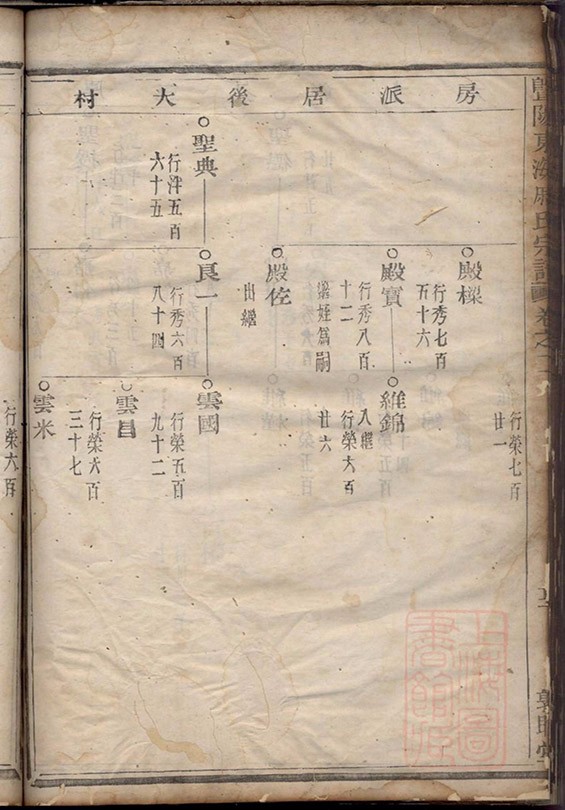 房派居後大村
行榮七百
廿一
殿樑
行秀七百
五十六
殿寶
行秀八百
十二
維錦
入繼
行榮六百
廿六
殿佐
出繼
聖典
行泮五百
六十五
良一
行秀六百
八十四
雲國
行榮五百
九十二
雲昌
行榮六百
三十七
雲米
行榮六百